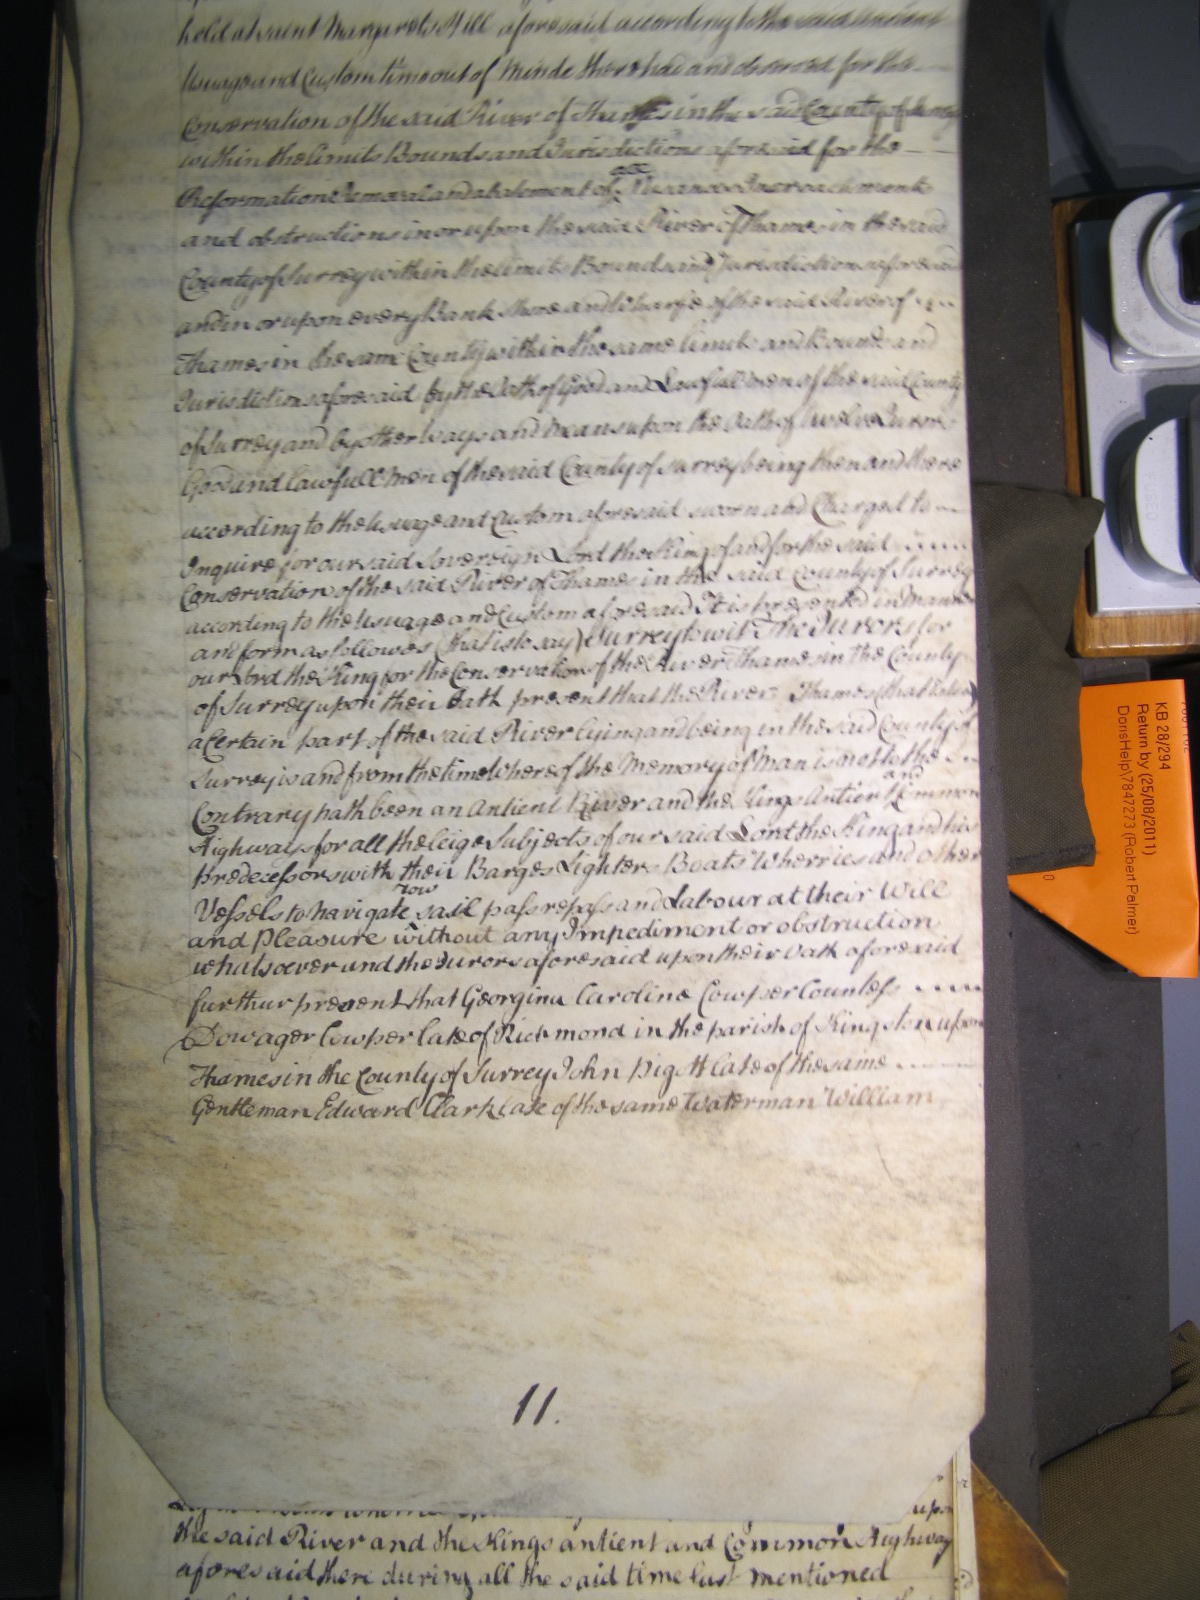 held at saint Margarets Hill aforesaid according to the said antient
Usage and Custom time out of Minde there had and observed for the
Conservation of the said River of Thames in the said County of Surrey
within the limits Bounds and Jurisdictions aforesaid for the
all
Reformation Removal and abatement of Nusances Incroachments
and obstructions in or upon the said River of Thames in the said
County of Surrey within the limits Bounds and Jurisdictions aforesaid
and in or upon every Bank Shore and Wharfe of the said River of
Thames in the same County within the same limits and Bounds and
Jurisdictions aforesaid by the Oath of Good and Lawfull men of the said County
of Surrey and by other ways and Means upon the Oath of twelve Jurors
Good and lawfull Men of the said County of Surrey being then and there
according to the Usage and Custom aforesaid sworn and Charged to
Inquire for our said Sovereign Lord the King of and for the said
Conservation of the said River of Thames in the said County of Surrey
according to the Usuage and Custom aforesaid It is presented in Manner
and form as followes (that is to say) Surrey to wit The Jurors for
our Lord the King for the Conservation of the River Thames in the County
of Surrey upon their Oath present that the River Thames (that is to say)
a Certain part of the said River lying and being in the said County of
Surrey is and from the time Whereof the Memory of Man is not to the
and
Contrary hath been an Antient River and the Kings Antient Common
Highway for all the leige Subjects of our said Lord the King and his
predecessors with their Barges Lighters Boats Wherries and other
row
Vessels to navigate sail pass repass and Labour at their Will
and Pleasure without any Impediment or obstruction
whatsoever and the Jurors aforesaid upon their Oath aforesaid
furthur present that Georgina Caroline Cowper Countess
Dowager Cowper late of Richmond in the parish of Kingston upon
Thames in the County of Surrey John Pigott late of the same
Gentleman Edward Clark late of the same Waterman William
11.
upon
the said River and the Kings antient and Common Highway
aforesaid there during all the said time last mentioned
KB 28/294
Return by (25/08/2011)
DonsHelp\7847273 (Robert Palmer)
0